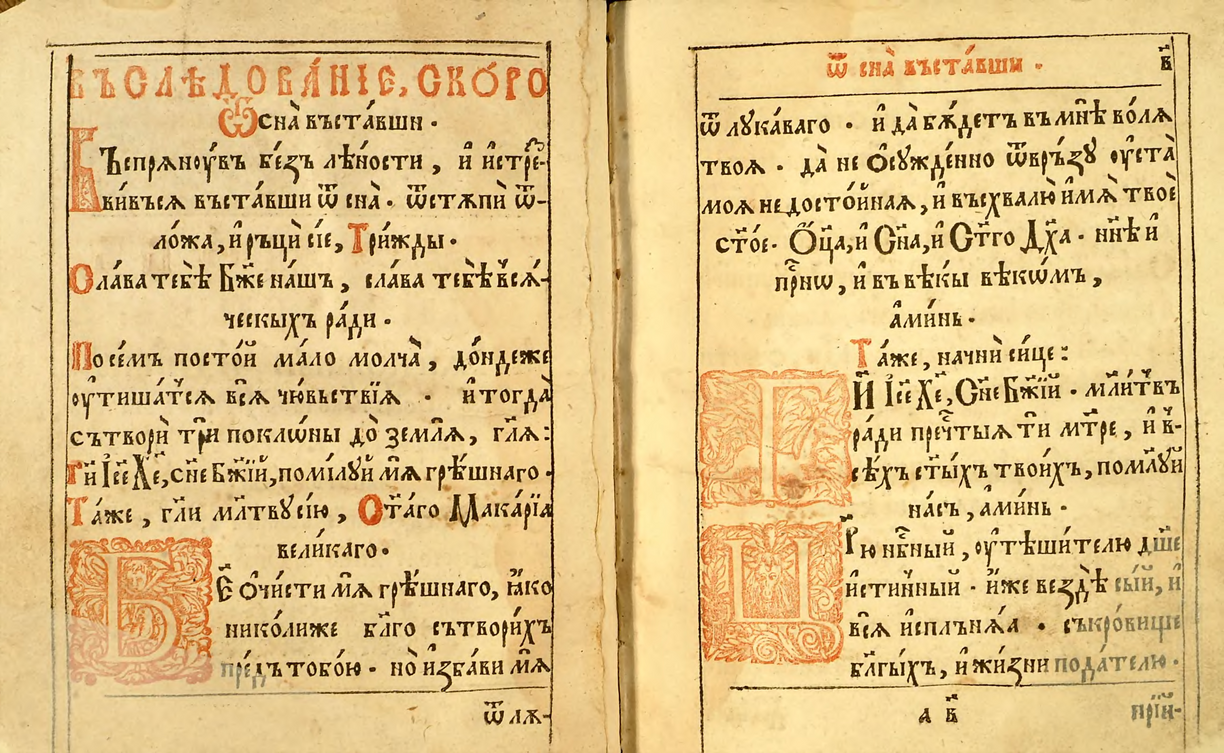 Въслѣдова́нїе, ско́ро
ѿ сна̀ въста́вши.
Въспрѧноу́въ бе́зъ лѣ́ности, и҆ и҆стре-
ви́въсѧ въста́вши ѿ сна̀. ѿстѫпѝ ѿ-
ло́жа, и҆ ръцѝ сїе, Три́жды.
Сла́ва тебѣ̀ Бж҃е на́шъ, сла́ва тебѣ̀ всѧ́-
ческыхъ ра́ди.
По се́мъ посто́й ма́ло молча̀, до́ндеже
оу҆тиша́тсѧ всѧ̀ чю́вьствїѧ. и҆ тогда̀
сътворѝ трѝ покло́ны до̀ землѧ̀, гл҃ѧ:
Гⷭ҇и І҆с҃е Хе҃, сн҃е Бж҃їй, поми́луй мѧ̀ грѣ́шнаго.
Та́же, гл҃и мл҃твусїю, Ст҃а́го Мака́рїа
вели́каго.
Бж҃е ѻ҆чи́сти мѧ̀ грѣ́шнаго, ꙗ҆́ко
николи́же бл҃го сътвори́хъ
пре́дъ тобо́ю. но̀ и҆зба́ви мѧ̀
ѿ лѧ-
ѿ сна̀ въста́вши.
в҃
ѿ лука́ваго. и҆ да̀ бѫ́детъ въ мнѣ̀ во́лѧ
твоѧ. да̀ не ѻ҆сужде́нно ѿвръзу оу҆ста̀
моѧ недосто́йнаѧ, и҆ въсхвалю̀ и҆́мѧ̀ твоѐ
ст҃о́е. Ѻ҆ц҃а, и҆ Сн҃а, и҆ Ст҃го Дх҃а. нн҃ѣ и҆
прⷭ҇нѡ, и҆ въ вѣ́кы вѣкѡ́мъ,
а҆ми́нь.
Та́же, начнѝ си́це:
Гⷭ҇и І҆с҃е Хе҃, Сн҃е Бж҃їй. мл҃и́твъ
ра́ди преч҃тыѧ ти҆ мт҃ре, и҆ в-
сѣ́хъ ст҃ы́хъ твои́хъ, поми́луй
на́съ, а҆ми́нь.
Цр҃ю нб҃ный, оу҆тѣ́шителю дш҃е
и҆́стинный. и҆́же вездѣ̀ сы́й, и҆
всѧ̀ и҆сплънѧ́а. съкро́вище
бл҃гы́хъ, и҆ жи́зни пода́телю.
а в҃
прїй-